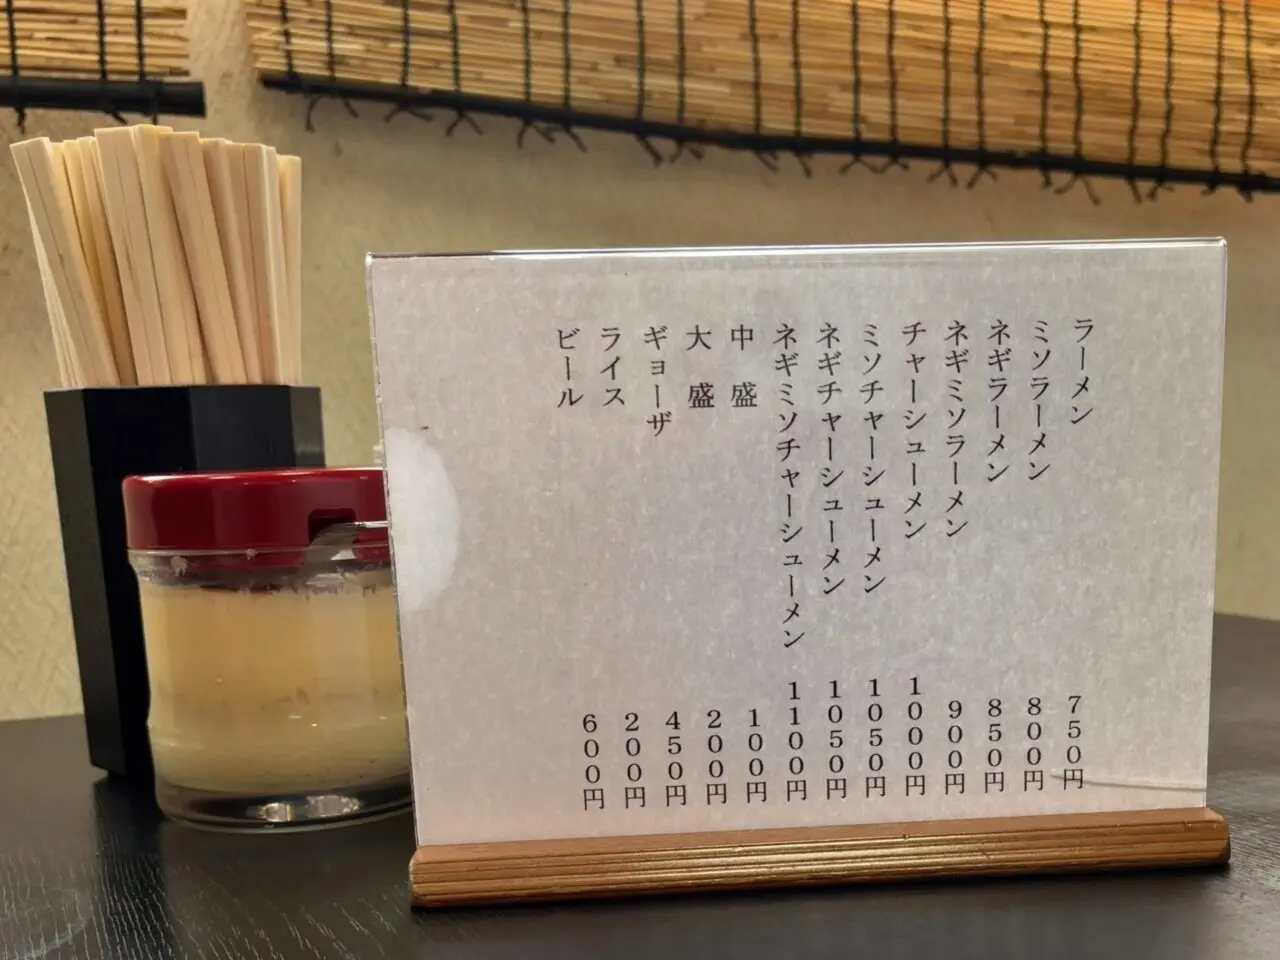 ラーメン 750円
ミソラーメン 800円
ネギラーメン 850円
ネギミソラーメン 900円
チャーシューメン 1000円
ミソチャーシューメン 1050円
ネギチャーシューメン 1050円
ネギミソチャーシューメン 1100円
中盛 100円
大盛 200円
ギョーザ 450円
ライス 200円
ビール 600円